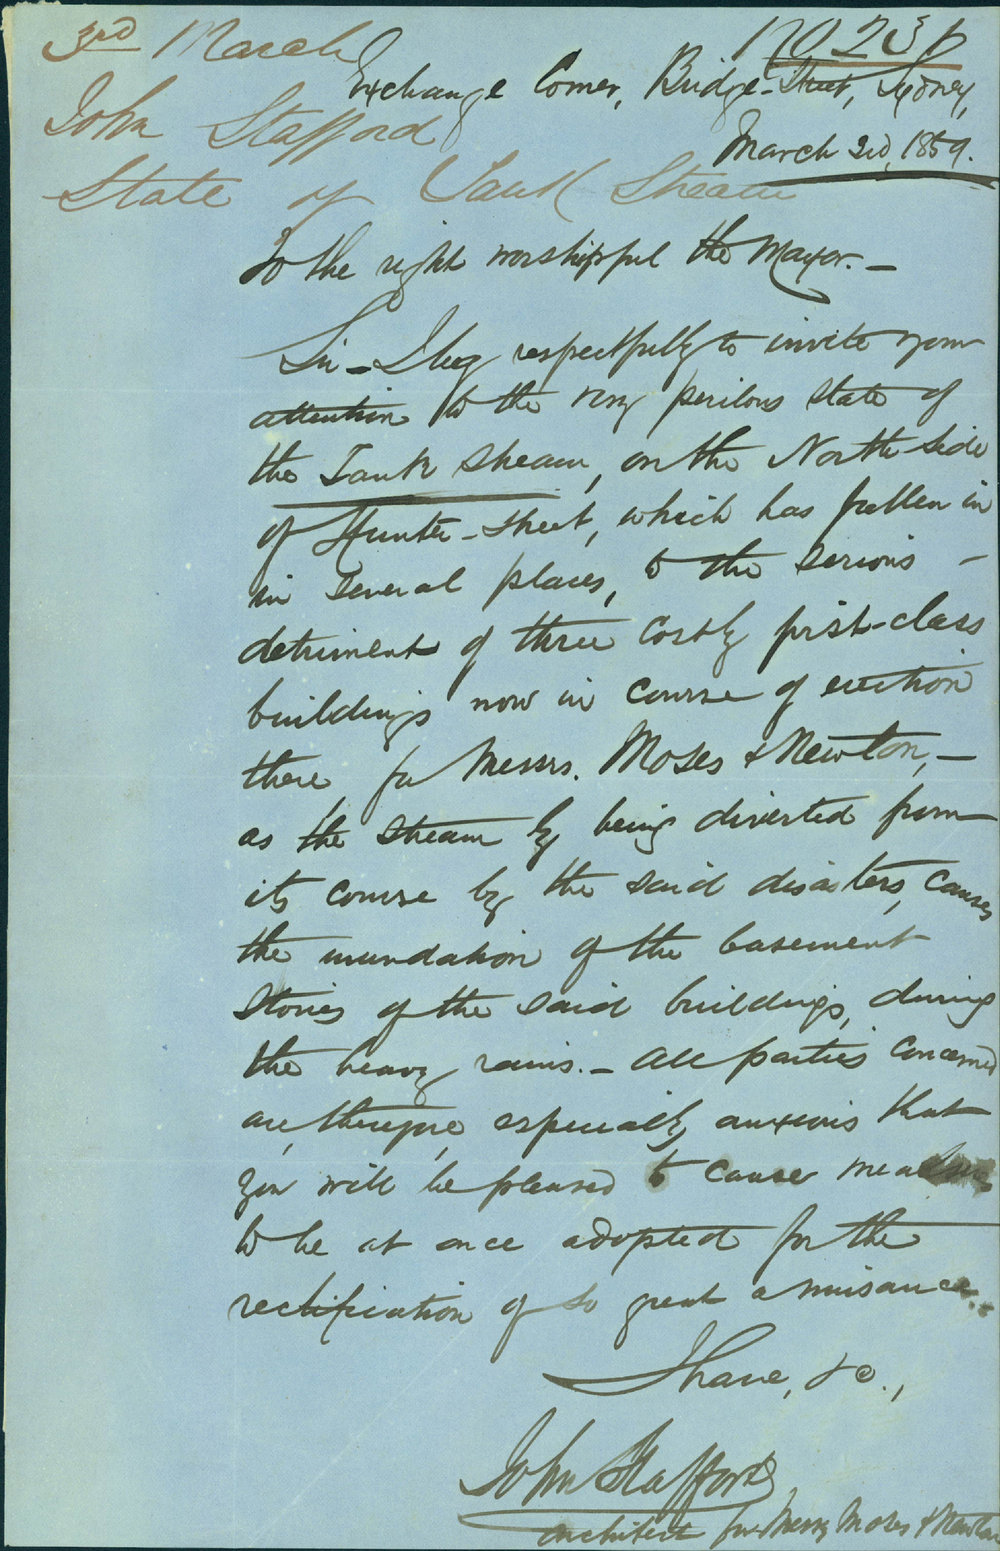 3rd March
No 236
John Stafford
State of Tank Stream
Exchange Corner, Bridge-Street, Sydney,
March 2d, 1859.
To the right worshipful the Mayor. —
Sir — I beg respectfully to invite your
attention to the very perilous state of
the Tank Stream, on the North side
of Hunter-Street, which has fallen in
in several places, to the serious —
detriment of three costly first-class
buildings now in course of erection
there for Messrs. Moses & Newton, —
as the stream by being diverted from
its course by the said disasters, causes
the inundation of the basement
stories of the said buildings, during
the heavy rains. — All parties concerned
are, therefore, especially anxious that
you will be pleased to cause measures
to be at once adopted for the
rectification of so great a nuisance. .
I have, &c.,
John Stafford,
Architect for Messrs Moses & Newton